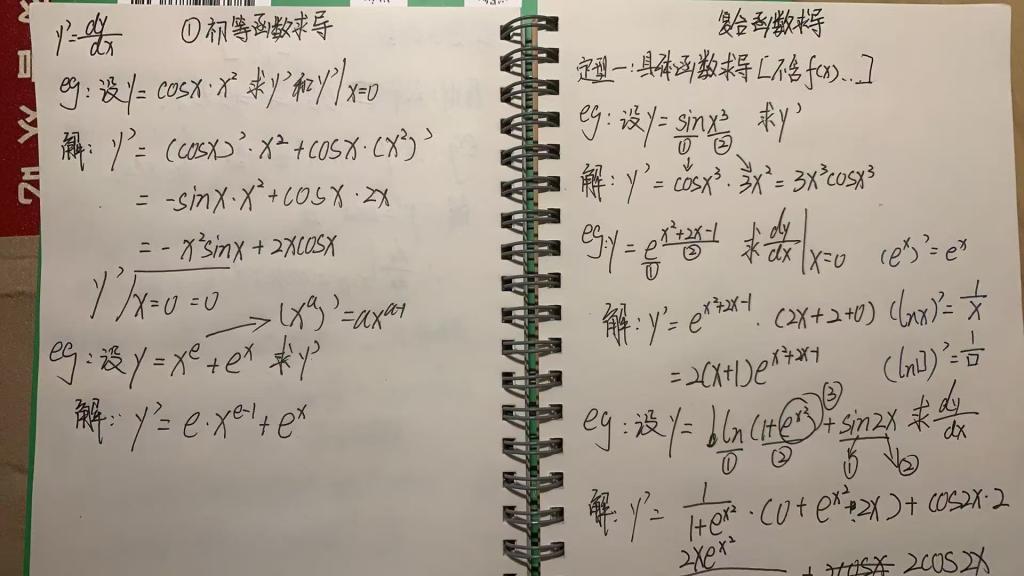 y'=dy/dx ①初等函数求导
eg:设y=cosx·x² 求y'和y'|x=0
解: y'=(cosx)'·x²+cosx·(x²)'
=-sinx·x²+cosx·2x
=-x²sinx+2xcosx
y'|x=0=0
(x^a)'=ax^(a-1)
eg:设y=x^e+e^x 求y'
解: y'=e·x^(e-1)+e^x
复合函数求导
定型一:具体函数求导[不含f(x)...]
eg:设y=sinx³ 求y'
① ②
解: y'=cosx³·3x²=3x³cosx³
eg:y=e^(x²+2x-1) 求dy/dx|x=0 (e^x)'=e^x
① ②
解: y'=e^(x²+2x-1)·(2x+2+0) (lnx)'=1/x
=2(x+1)e^(x²+2x-1) (ln□)'=1/□
eg:设y=ln(1+e^(x²))+sin2x 求dy/dx
① ② ③ ① ②
解: y'=1/(1+e^(x²))·(0+e^(x²)·2x)+cos2x·2
2xe^(x²) + 2cos2x